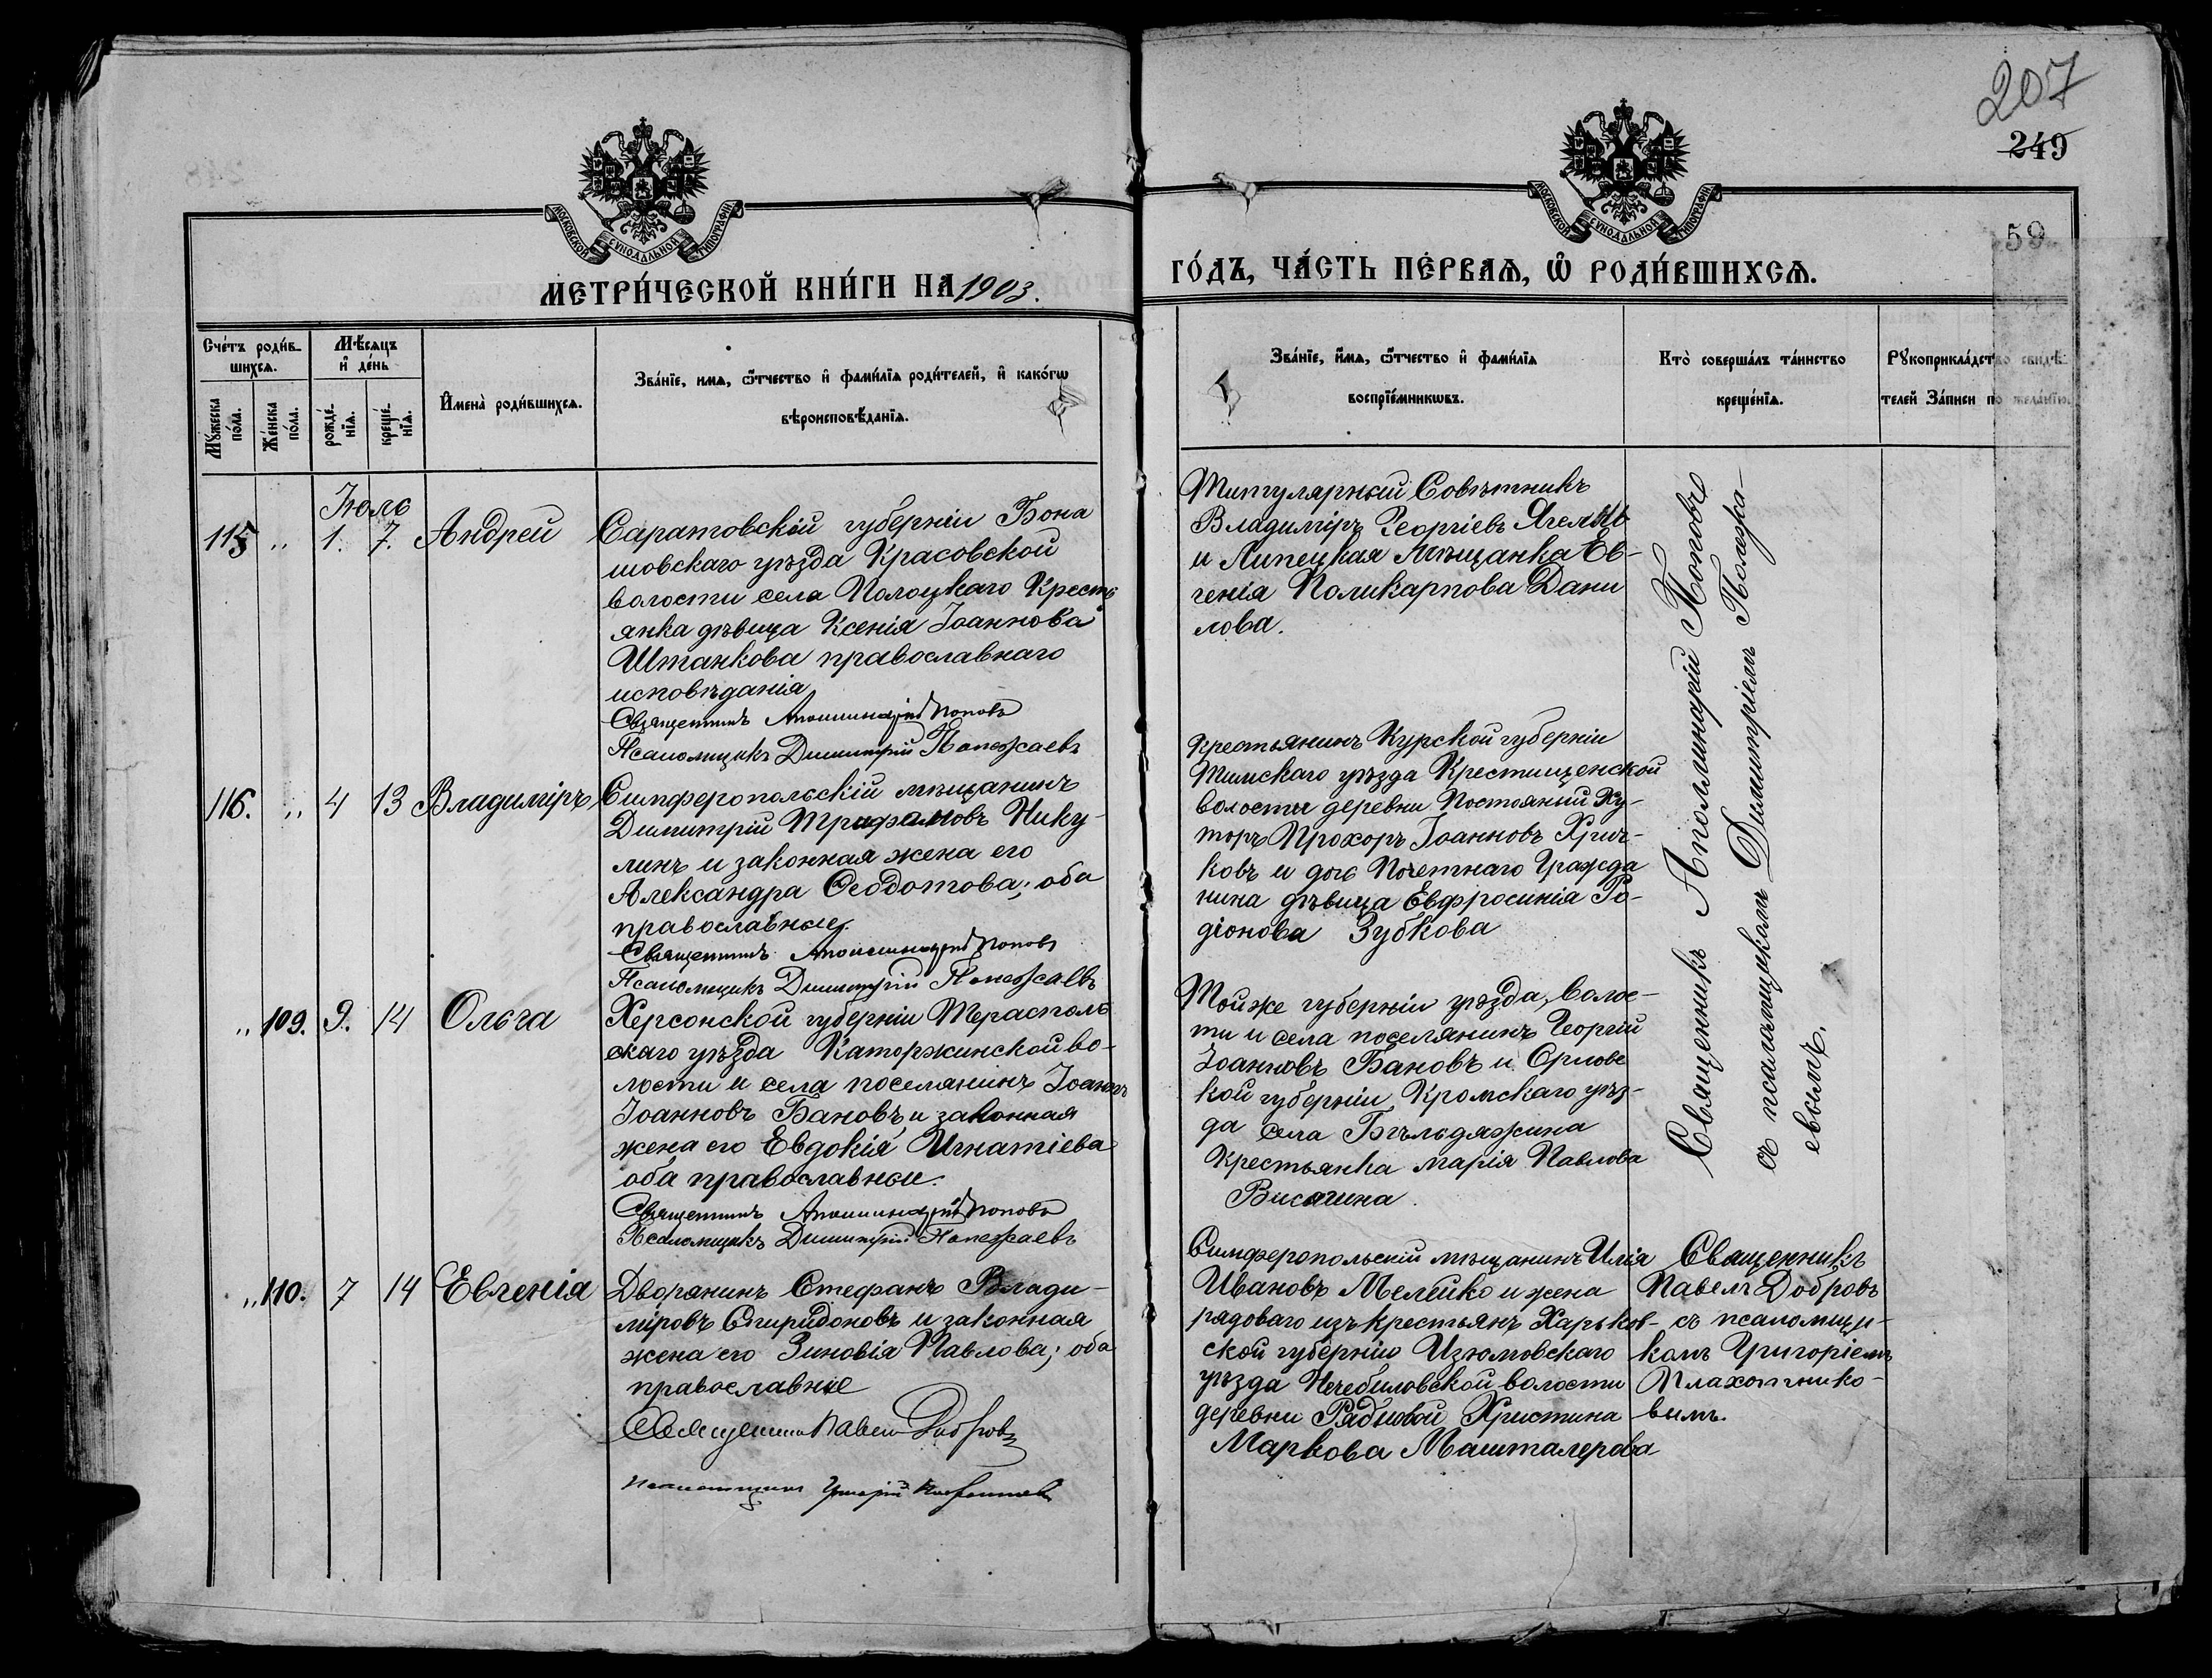 207
249
59
МОСКОВСКОЙ СѴНОДАЛЬНОЙ ТИПОГРАФІИ
МОСКОВСКОЙ СѴНОДАЛЬНОЙ ТИПОГРАФІИ
МЕТРИ́ЧЕСКОЙ КНИ́ГИ НА 1903.
ГО́ДЪ, ЧА́СТЬ ПЕ́РВАѦ, Ѿ РОДИ́ВШИХСѦ.
Сче́тъ роди́в-
шихсѧ.
Мꙋ́жеска
по́ла.
Же́нска
по́ла.
Мѣ́сѧцъ
и҆ де́нь
рожде́-
нїѧ.
креще́-
нїѧ.
И҆мена̀ роди́вшихсѧ.
Зва́нїе, имѧ, ѻ҆́тчество и҆ фами́лїѧ роди́телей, и҆ како́гѡ
вѣроисповѣ́данїѧ.
Зва́нїе, и҆́мѧ, ѻ҆́тчество и҆ фами́лїѧ
воспрїе́мникѡвъ.
Кто̀ соверша́лъ та́инство
креще́нїѧ.
Рꙋкоприкла́дство свидѣ-
телей За́писи по жела́нїю.
Іюль
115 „ 1. 7. Андрей
Саратовскій губерніи Бона
шовскаго уѣзда Красовской
волости села Полоцкаго Кресть
янка дѣвица Ксенія Іоаннова
Штанкова православнаго
исповѣданія
Священникъ Аполлинарій Поповъ
Псаломщикъ Димитрій Полежаевъ
Титулярный Совѣтникъ
Владиміръ Георгіевъ
и Липецкая Мѣщанка Ев-
генія Поликарпова Дани
лова.
116. „ 4 13 Владиміръ
Симферопольскій мѣщанинъ
Димитрій Трифановъ Нику-
линъ и законная жена его
Александра Ѳеодотова; оба
православные.
Священникъ Аполлинарій Поповъ
Псаломщикъ Димитрій Полежаевъ
Крестьянинъ Курской губерніи
Тимскаго уѣзда Крестищенской
волосты деревни Постояный Ху-
торъ Прохоръ Іоанновъ
ковъ и дочь Почетнаго Гражда
нина дѣвица Евфросинія Ро-
діонова Зубкова
„ 109. 9. 14 Ольга
Херсонской губерніи Тераспольскаго
уѣзда Каторжинской во-
лости и села поселянинъ Іоаннъ
Іоанновъ Бановъ и законная
жена его Евдокія Игнатіева
оба православные.
Священникъ Аполлинарій Поповъ
Псаломщикъ Димитрій Полежаевъ
Той же губерніи уѣзда, волос-
ти и села поселянинъ Георгій
Іоанновъ Бановъ и Орловс
кой губерніи Кромскаго уѣз-
да села
Крестьянка Марія Павлова
Висягина.
Священникъ Аполлинарій Поповъ
съ псаломщикомъ Димитріемъ Полежа-
евымъ.
„ 110. 7 14 Евгенія
Дворянинъ Стефанъ Влади-
міровъ Спиридоновъ и законная
жена его Зиновія Павлова; оба
православные
Священникъ Павелъ Добровъ
Псаломщикъ Григорій
Симферопольскій мѣщанинъ Илія
Ивановъ Мелейко и жена
рядоваго изъ крестьянъ Харьков-
ской губерніи Изюмовскаго
уѣзда волости
деревни Христина
Маркова Машталерова
Священникъ
Павелъ Добровъ
съ псаломщи-
комъ Григоріемъ
Плахотнико-
вымъ.